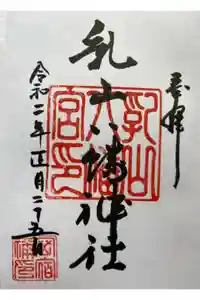 奉拝
乳山八幡神社
乳山
八幡
宮印
令和二年正月二十五日